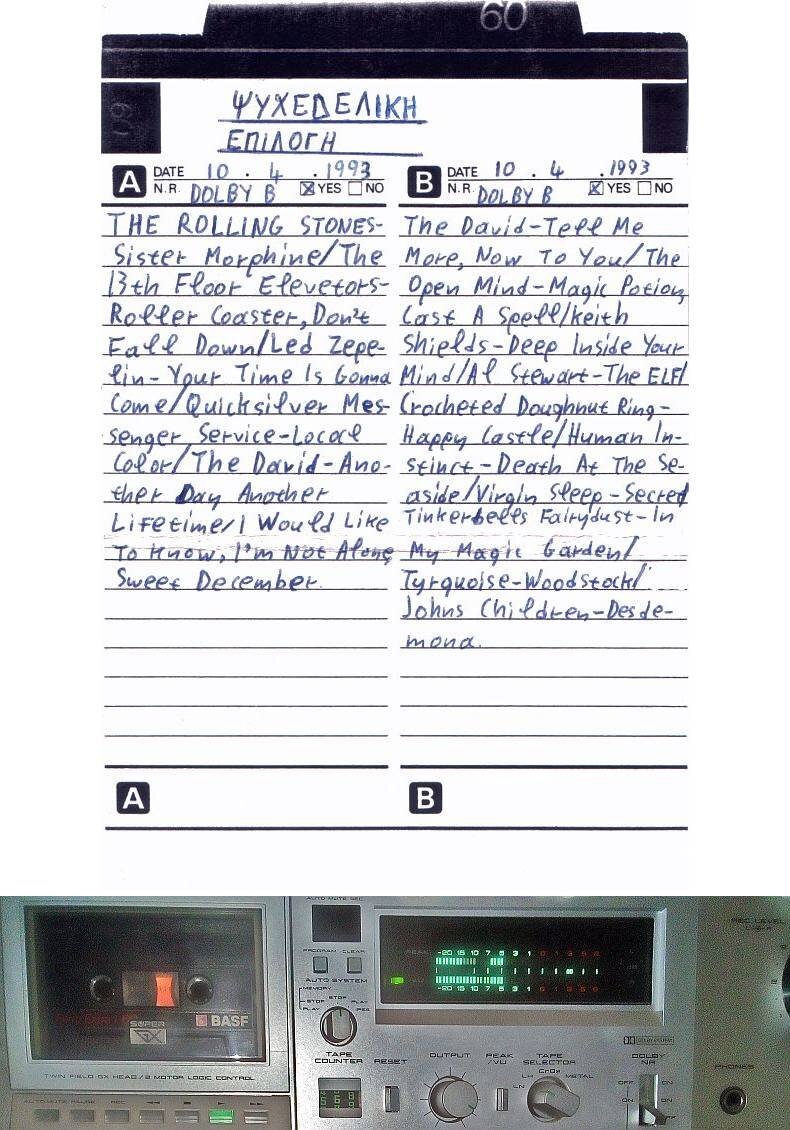 60
60
ΨΥΧΕΔΕΛΙΚΗ
ΕΠΙΛΟΓΗ
A DATE 10 . 4 . 1993
N.R. DOLBY B YES NO
THE ROLLING STONES-
Sister Morphine/The
13th Floor Elevetors-
Roller Coaster, Don't
Fall Down/Led Zepe-
lin-Your Time Is Gonna
Come/Quicksilver Mes-
senger Service-Local
Color/The David-Ano-
ther Day Another
Lifetime/I Would Like
To Know, I'm Not Alone
Sweet December.
A
B DATE 10 . 4 . 1993
N.R. DOLBY B YES NO
The David-Tell Me
More, Now To You/The
Open Mind-Magic Potion,
Cast A Spell/Keith
Shields-Deep Inside Your
Mind/Al Stewart-The ELF/
Crocheted Doughnut Ring-
Happy Castle/Human In-
stinct-Death At The Se-
aside/Virgin Sleep-Secret
Tinkerbells Fairydust-In
My Magic Garden/
Tyrquoise-Woodstock/
Johns Children-Desde-
mona.
B
SUPER
GX
BASF
TWIN FIELD GX HEAD/2 MOTOR LOGIC CONTROL
AUTO MUTE PAUSE REC
AUTO MUTE REC
PROGRAM CLEAR
AUTO SYSTEM
MEMORY
STOP STOP PLAY
PLAY REC
TAPE
COUNTER
RESET
PEAK
-20 15 10 7 5 3 1 0 1 3 5 8
VU
-20 15 10 7 5 3 1 0 1 3 5 8
OUTPUT
PEAK
/VU
TAPE
SELECTOR
LN LH CrO2 METAL
DOLBY SYSTEM
DOLBY
NR
OFF ON
ON OFF
REC LEVEL
PHONES